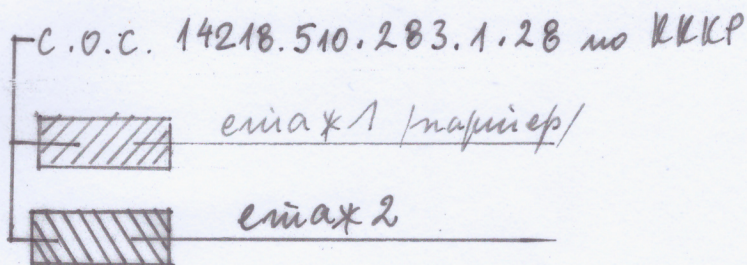 С.О.С. 14218.510.283.1.28 по КККР
етаж 1 /партер/
етаж 2